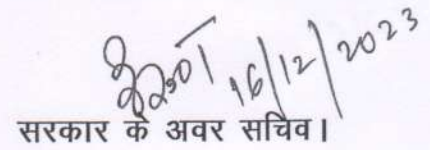 16/12/2023
सरकार के अवर सचिव।